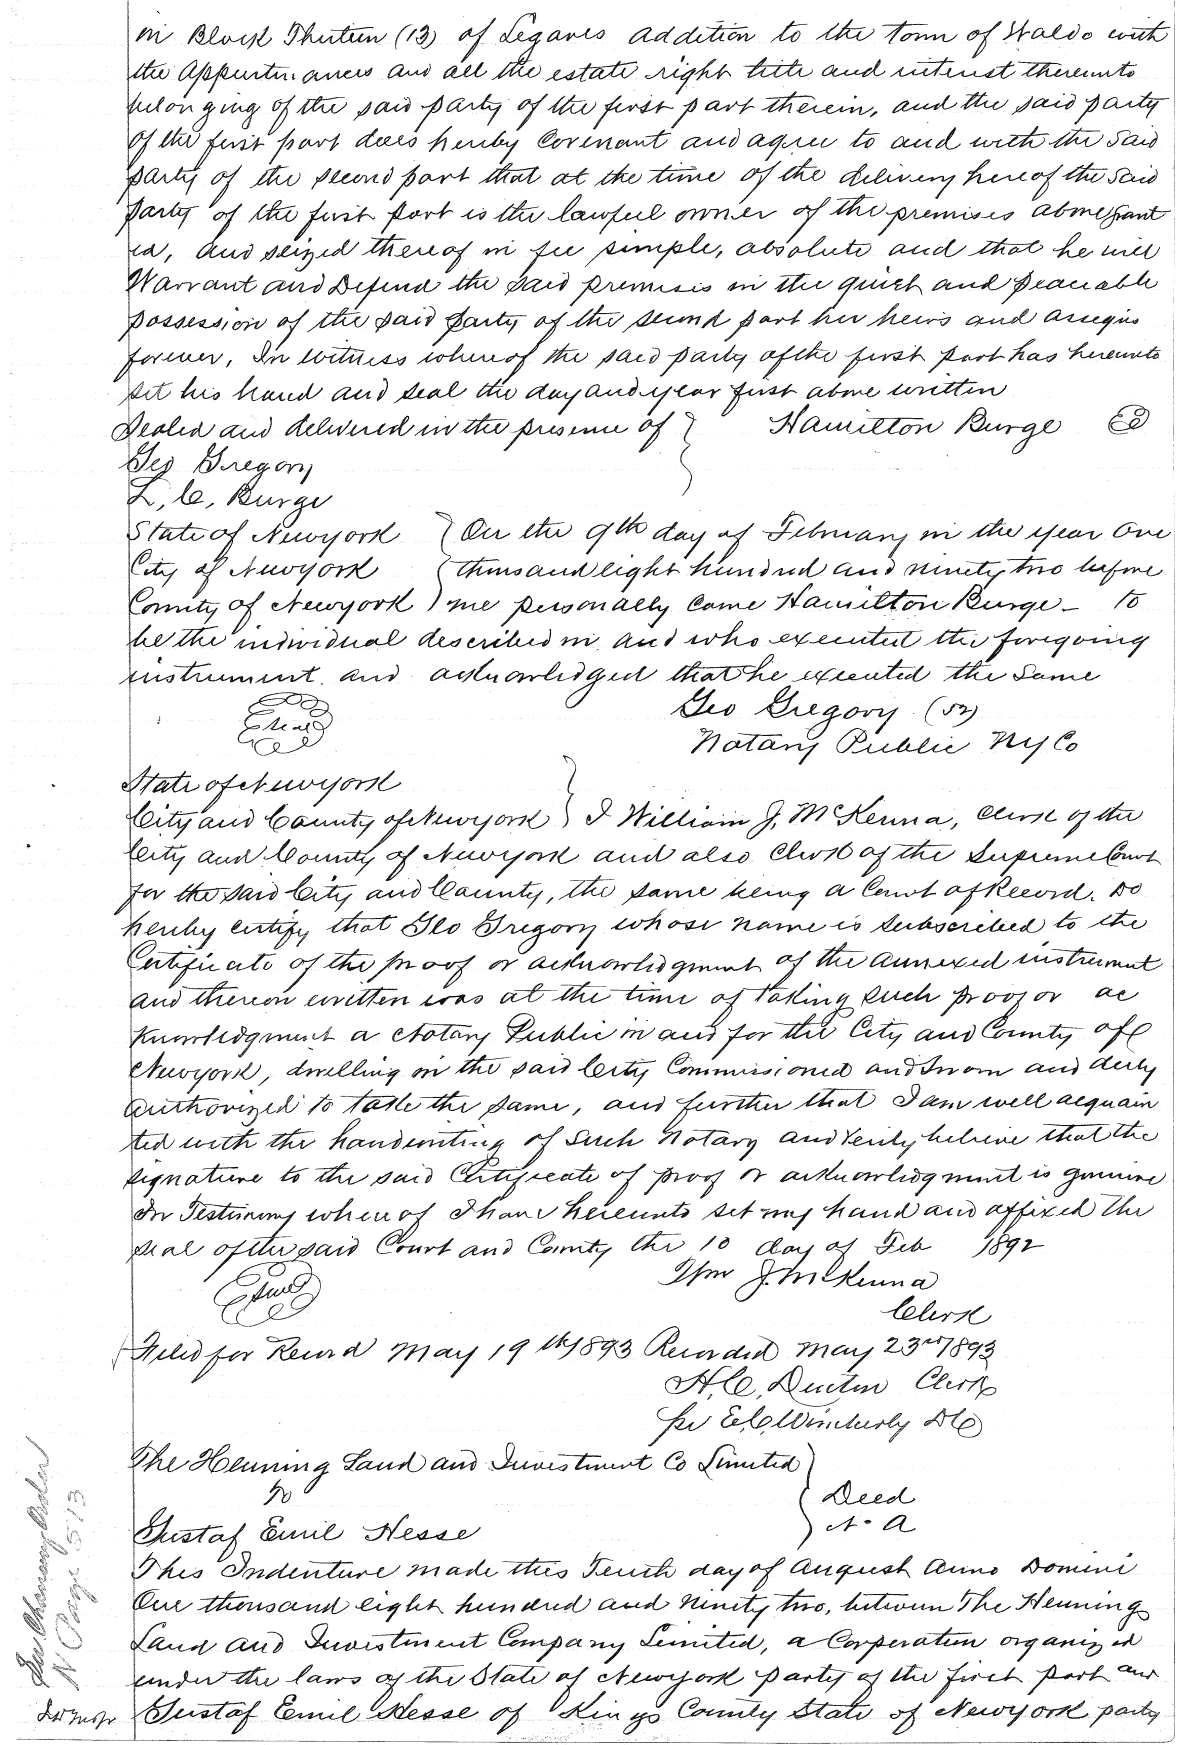 in Block Thirteen (13) of Legares addition to the Town of Waldo with
the Appurtenances and all the estate right title and interest thereunto
belonging of the said party of the first part therein, and the said party
of the first part does hereby Covenant and agree to and with the said
party of the second part that at the time of the delivery hereof the said
party of the first part is the lawful owner of the premises above grant
ed, and seized thereof in fee simple, absolute and that he will
Warrant and Defend the said premises in the quiet and peaceable
possession of the said party of the second part her heirs and assigns
forever, In witness whereof the said party of the first part has hereunto
set his hand and seal the day and year first above written
Sealed and delivered in the presence of } Hamilton Burge
Geo Gregory
L, C, Burge
State of Newyork } On the 9th day of February in the year One
City of Newyork thousand eight hundred and ninety two before
County of Newyork ) me personally came Hamilton Burge - to
be the individual described in and who executed the foregoing
instrument and acknowledged that he executed the same
Geo Gregory (52)
Notary Public NyCo
State of Newyork
City and County of Newyork } I William J, McKenna, Clerk of the
City and County of Newyork and also Clerk of the Supreme Court
for the said City and County, the same being a Court of Record. Do
hereby certify that Geo Gregory whose name is subscribed to the
Certificate of the proof or acknowledgment of the annexed instrument
and thereon written was at the time of taking such proof or ac
knowledgment a Notary Public in and for the City and County of
Newyork, dwelling in the said City Commissioned and Sworn and duly
authorized to take the same, and further that I am well acquain
ted with the handwriting of such Notary and verily believe that the
signature to the said Certificate of proof or acknowledgment is genuine
In Testimony whereof I have hereunto set my hand and affixed the
seal of the said Court and County the 10 day of Feb 1892
Wm J. McKenna
Clerk
Filed for Record May 19th 1893 Recorded May 23rd 1893
H, C, Denton Clerk
per E, C, Wimberly DC
The Henning Land and Investment Co Limited
To
Deed
N. A
Gustaf Emil Hesse
This Indenture made this Tenth day of August Anno Domini
One thousand eight hundred and ninety two, between The Henning
Land and Investment Company Limited, a Corporation organized
under the laws of the State of Newyork party of the first part and
Gustaf Emil Hesse of Kings County State of Newyork party
See Chancery Order
N Page 513